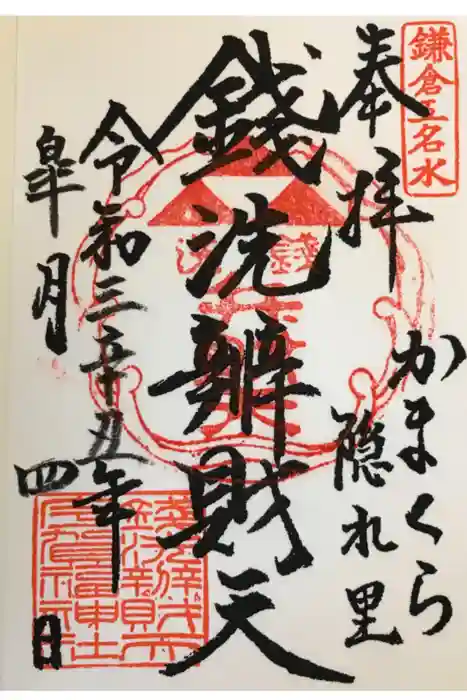 鎌倉五名水
奉拝
かまくら
隠れ里
錢洗辨財天
令和三辛丑年
皐月四日